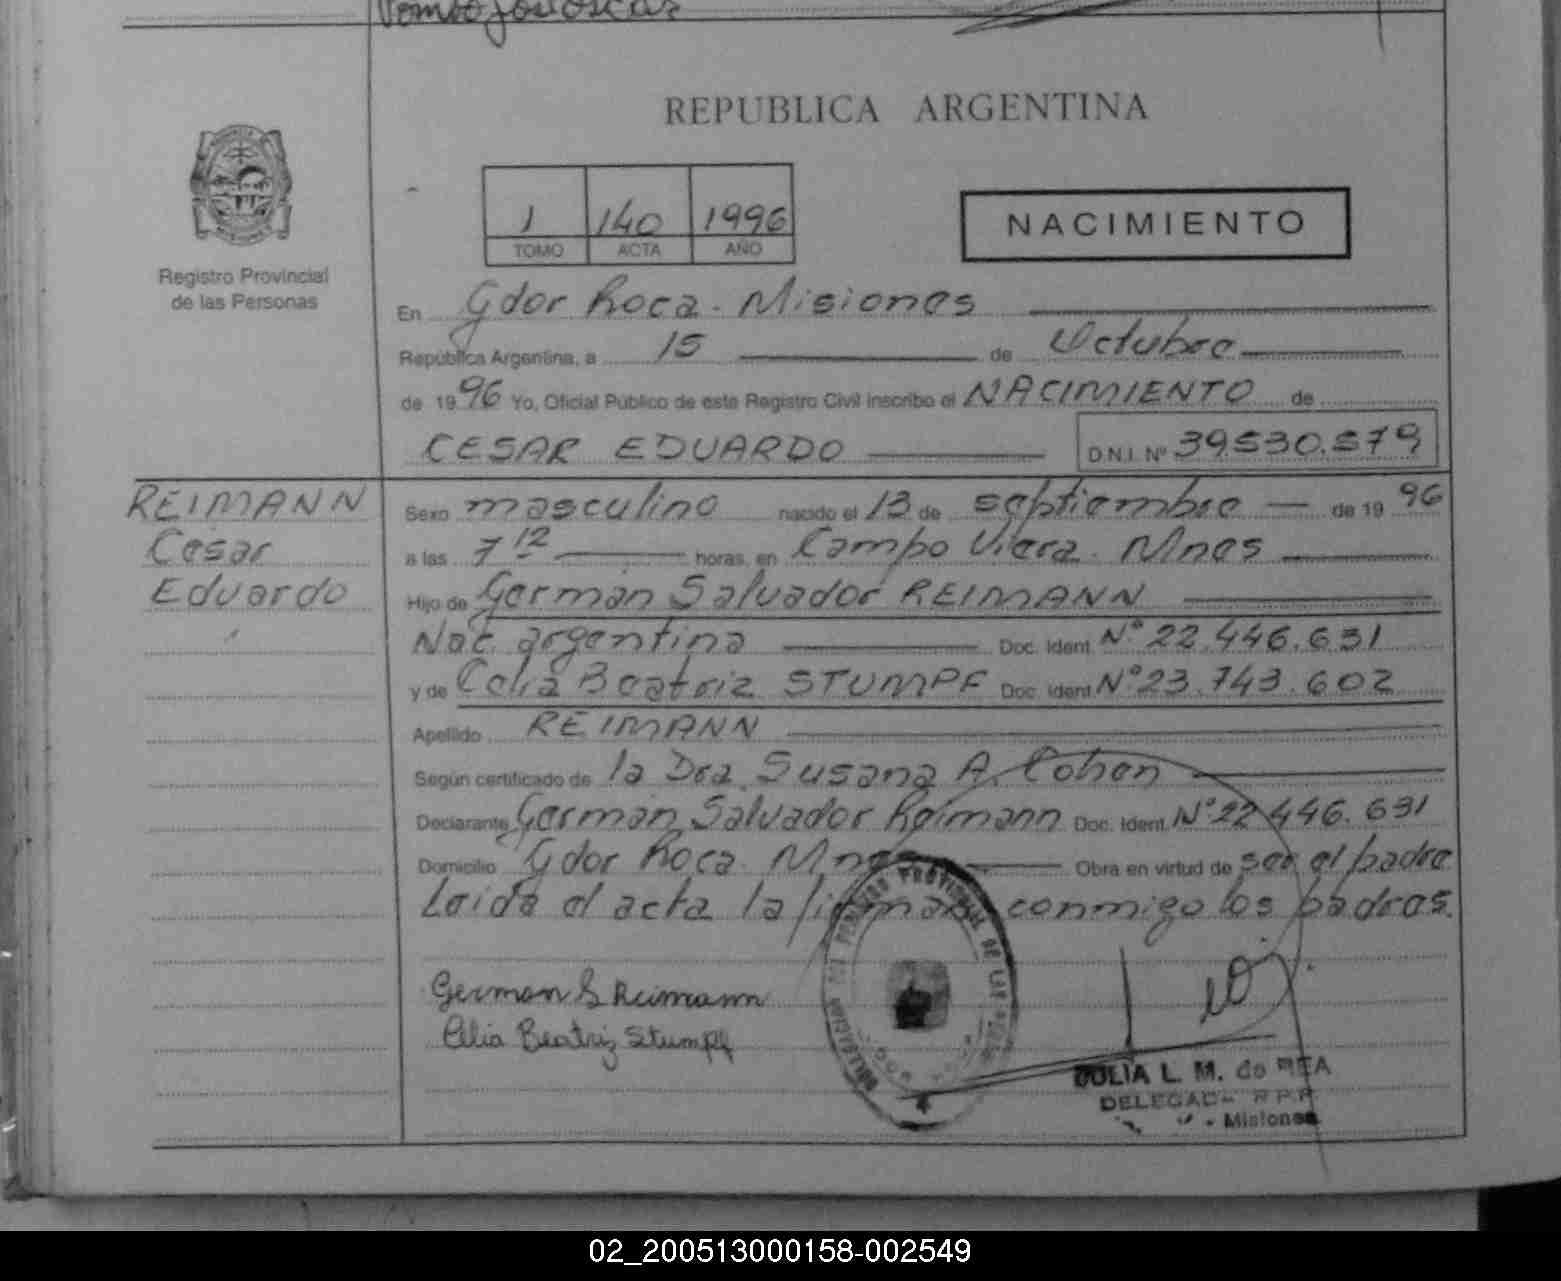 REPUBLICA ARGENTINA
Registro Provincial
de las Personas
1 140 1996
TOMO ACTA AÑO
NACIMIENTO
En Gdor Roca. Misiones
República Argentina, a 15 de Octubre
de 1996 Yo, Oficial Público de este Registro Civil inscribo el NACIMIENTO de
CESAR EDUARDO D.N.I. Nº 39.530.579
REIMANN
Cesar
Eduardo
Sexo masculino nacido el 13 de septiembre de 1996
a las 7 12 horas, en Campo Viera. Mnes
Hijo de Germán Salvador REIMANN
Nac. argentina Doc. Ident. Nº 22.446.631
y de Celia Beatriz STUMPF Doc. Ident. Nº 23.743.602
Apellido REIMANN
Según certificado de la Dra. Susana A. Cohen
Declarante Germán Salvador Reimann Doc. Ident. Nº 22.446.631
Domicilio Gdor Roca. Mnes Obra en virtud de ser el padre
Leída el acta la firman conmigo los padres.
German S Reimann
Celia Beatriz Stumpf
L. M. de
Misiones
02_200513000158-002549